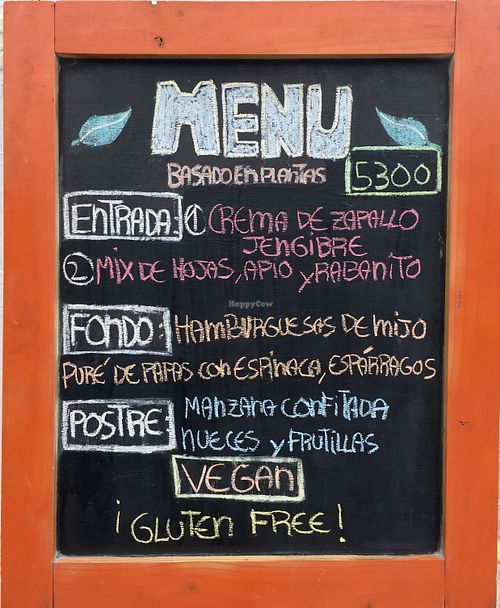 MENU
BASADO EN PLANTAS
5300
ENTRADA: ① CREMA DE ZAPALLO
JENGIBRE
② MIX DE HOJAS, APIO y RABANITO
HappyCow
FONDO: HAMBURGUESAS DE MIJO
PURÉ DE PAPAS CON ESPINACA, ESPÁRRAGOS
POSTRE MANZANA CONFITADA
NUECES y FRUTILLAS
VEGAN
¡GLUTEN FREE!